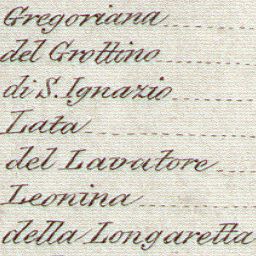 Gregoriana
del Grottino
di S. Ignazio
Lata
del Lavatore
Leonina
della Longaretta